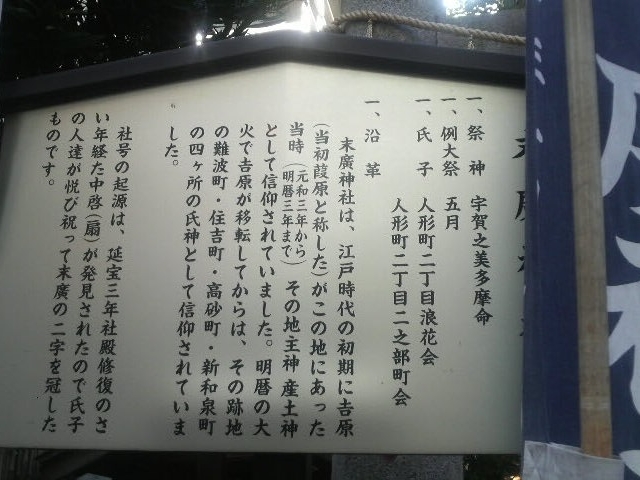 末廣神
一、祭神 宇賀之美多摩命
一、例大祭 五月
一、氏子 人形町二丁目浪花会
人形町二丁目二之部町会
一、沿革
末廣神社は、江戸時代の初期に吉原
(当初葭原と称した)がこの地にあった
当時(元和三年から明暦三年まで)その地主神産土神
として信仰されていました。明暦の大
火で吉原が移転してからは、その跡地
の難波町・住吉町・高砂町・新和泉町
の四ヶ所の氏神として信仰されていま
した。
社号の起源は、延宝三年社殿修復のさ
い年経た中啓(扇)が発見されたので氏子
の人達が悦び祝って末廣の二字を冠した
ものです。